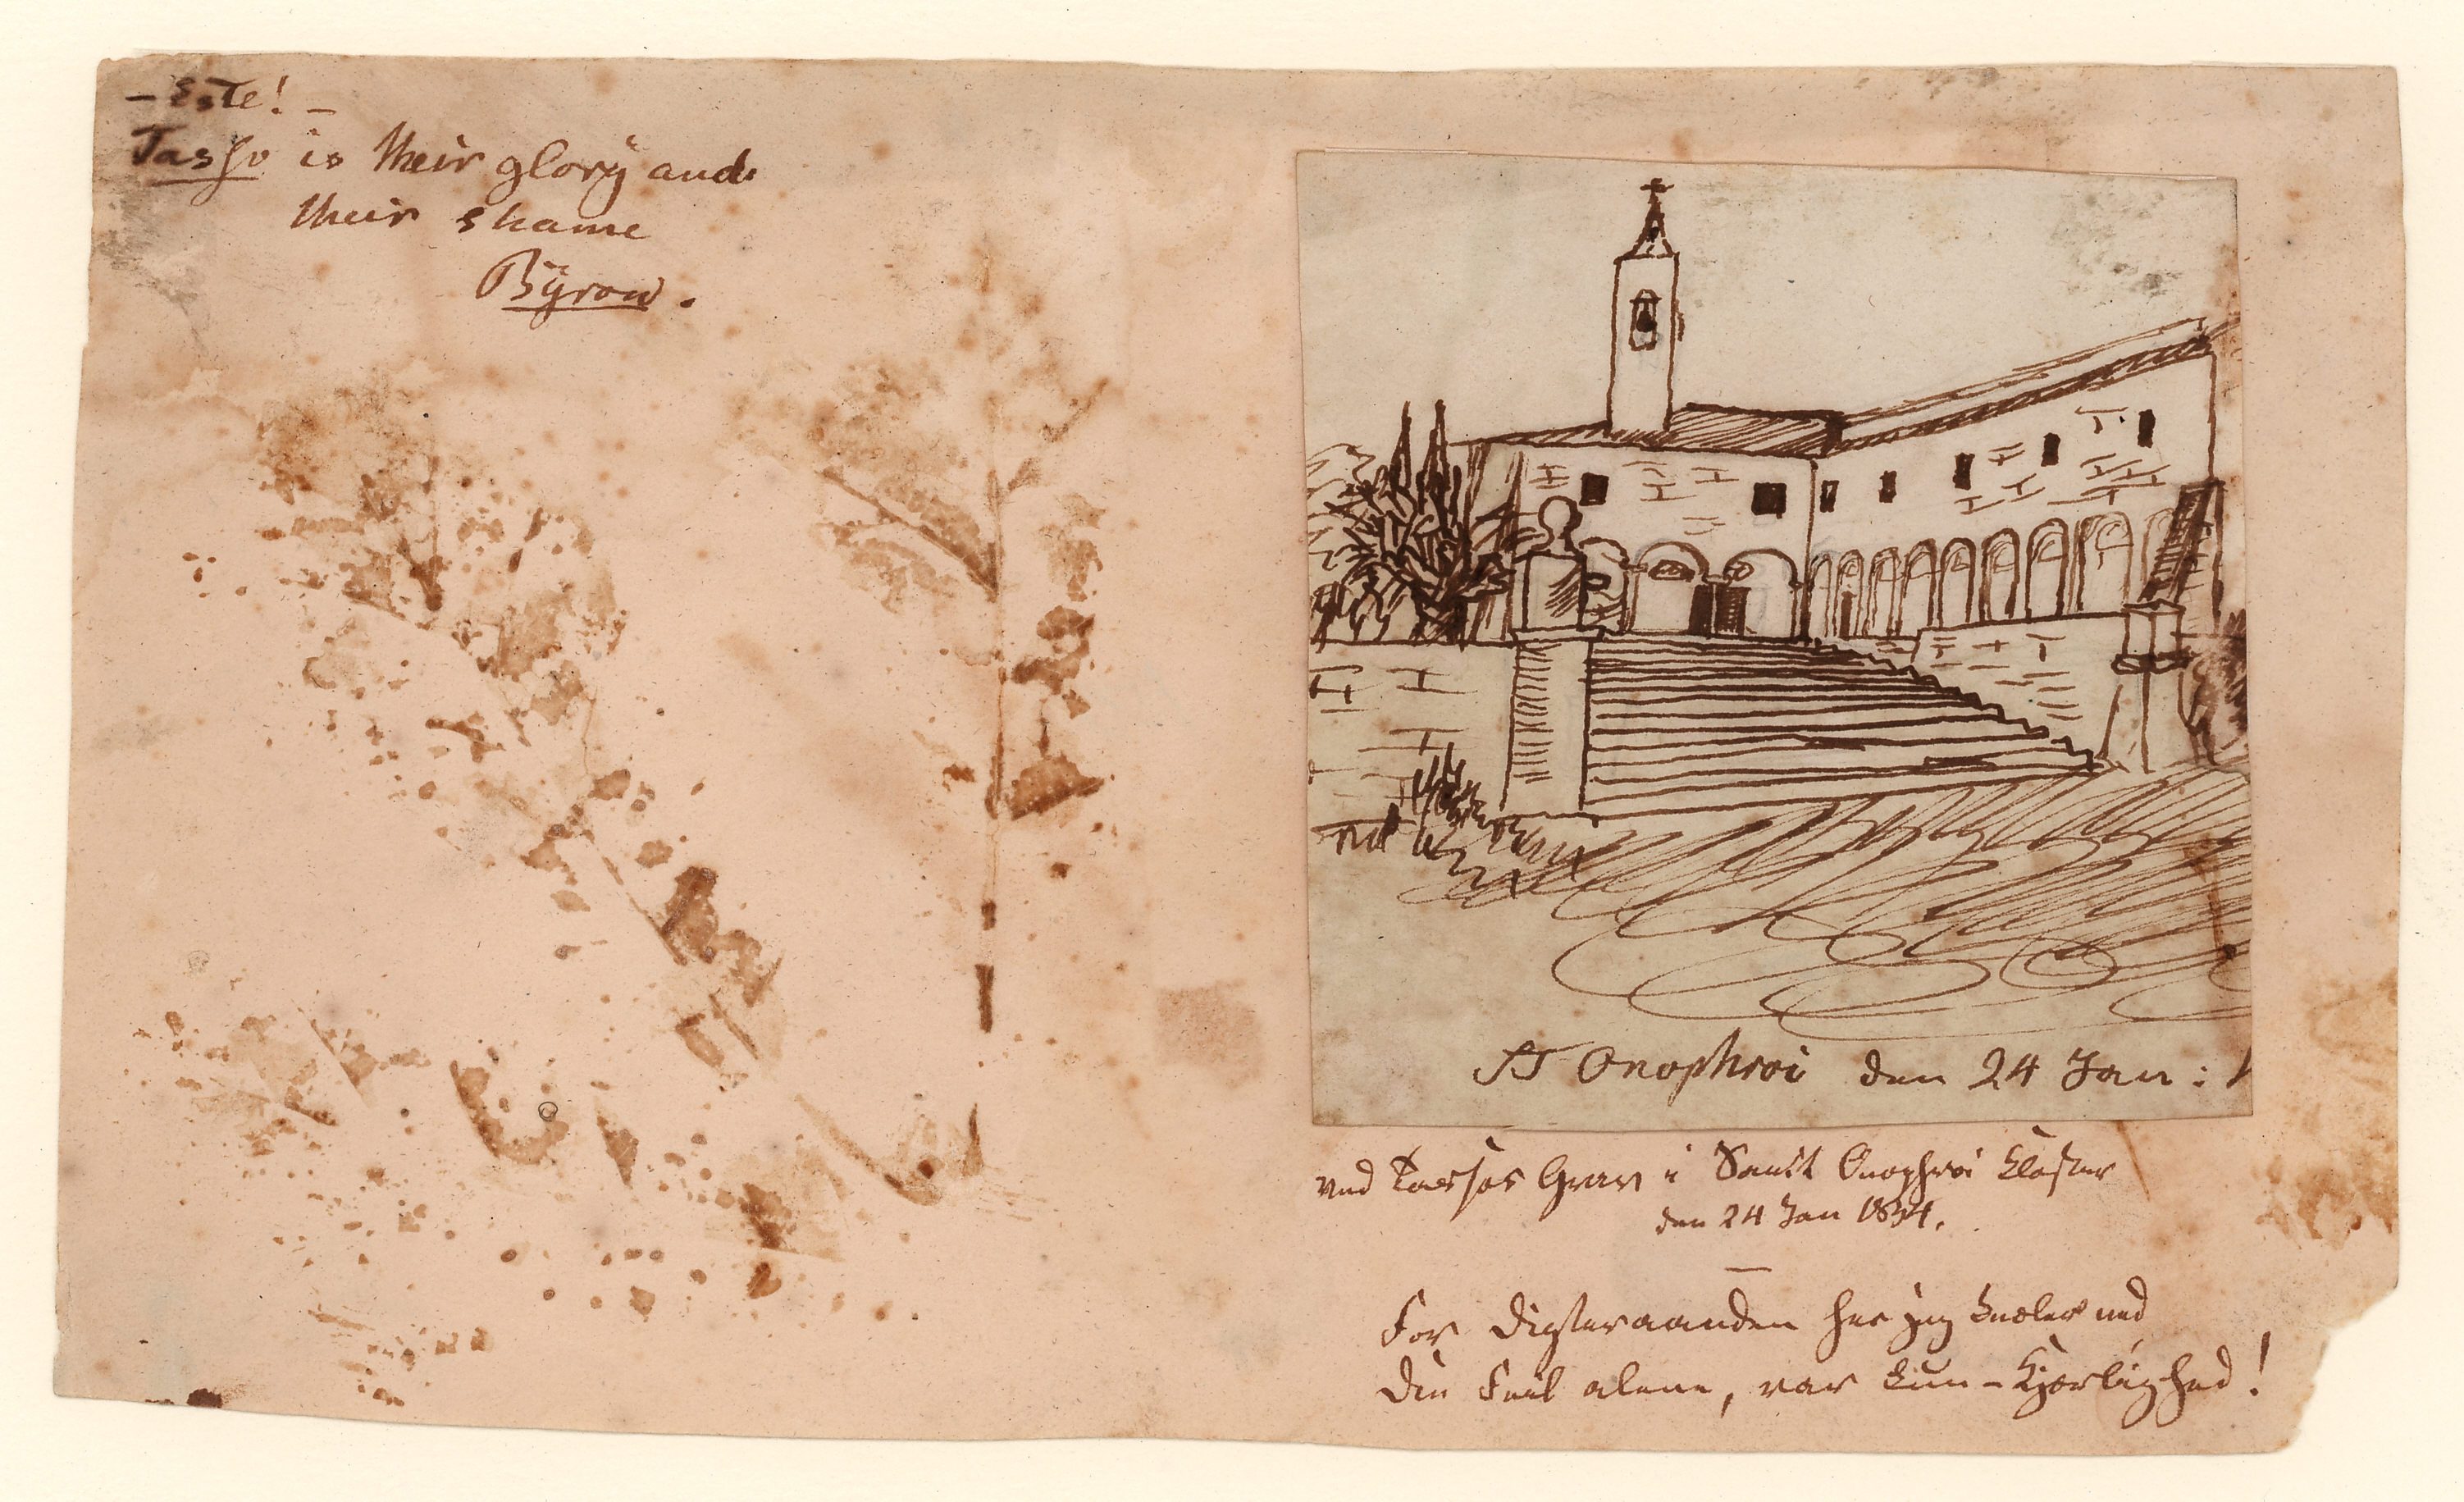 – Este! –
Tasso is their glory and
their shame
Byron.
ST Onophroi den 24 Jan:
ved Tassos Grav i Sanct Onophroi Kloster
den 24 Jan 1834.
For Digteraanden her jeg knæler ned
Din Feil alene, var kun – Kjærlighed!